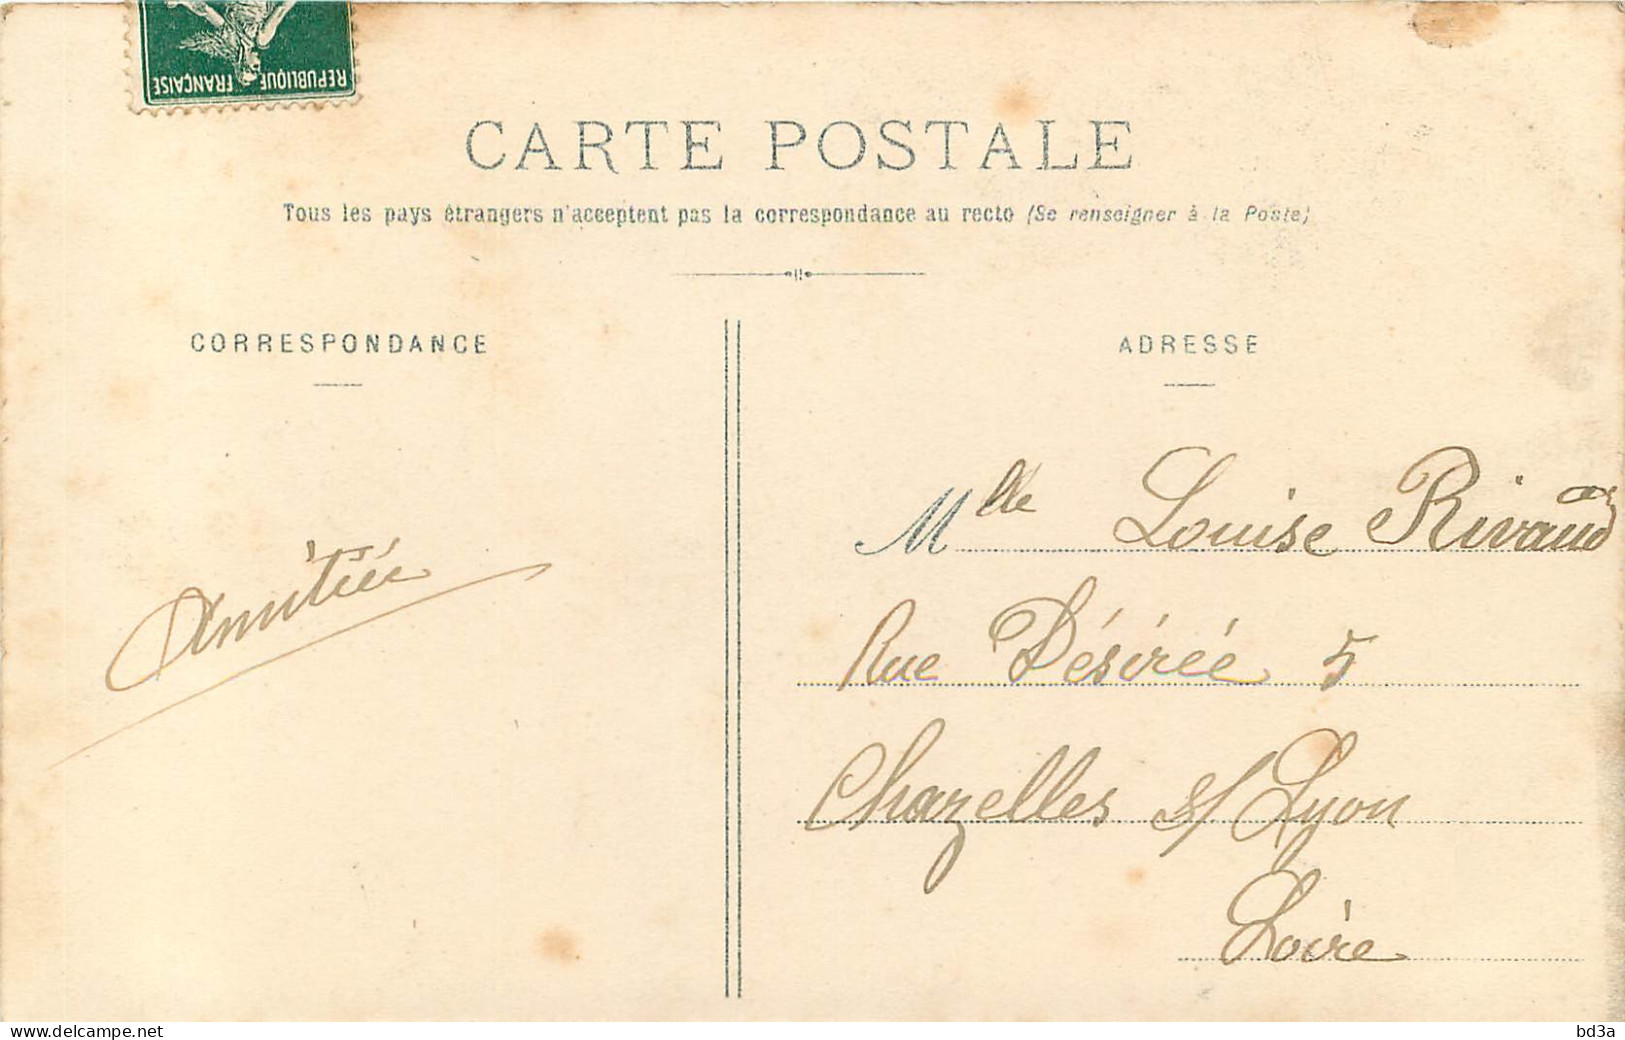 REPUBLIQUE FRANÇAISE
CARTE POSTALE
Tous les pays étrangers n'acceptent pas la correspondance au recto (Se renseigner à la Poste)
CORRESPONDANCE
Amitié
ADRESSE
Mlle Louise Rivaud
Rue Désirée 5
Chazelles s/ Lyon
Loire
www.delcampe.net
bd3a